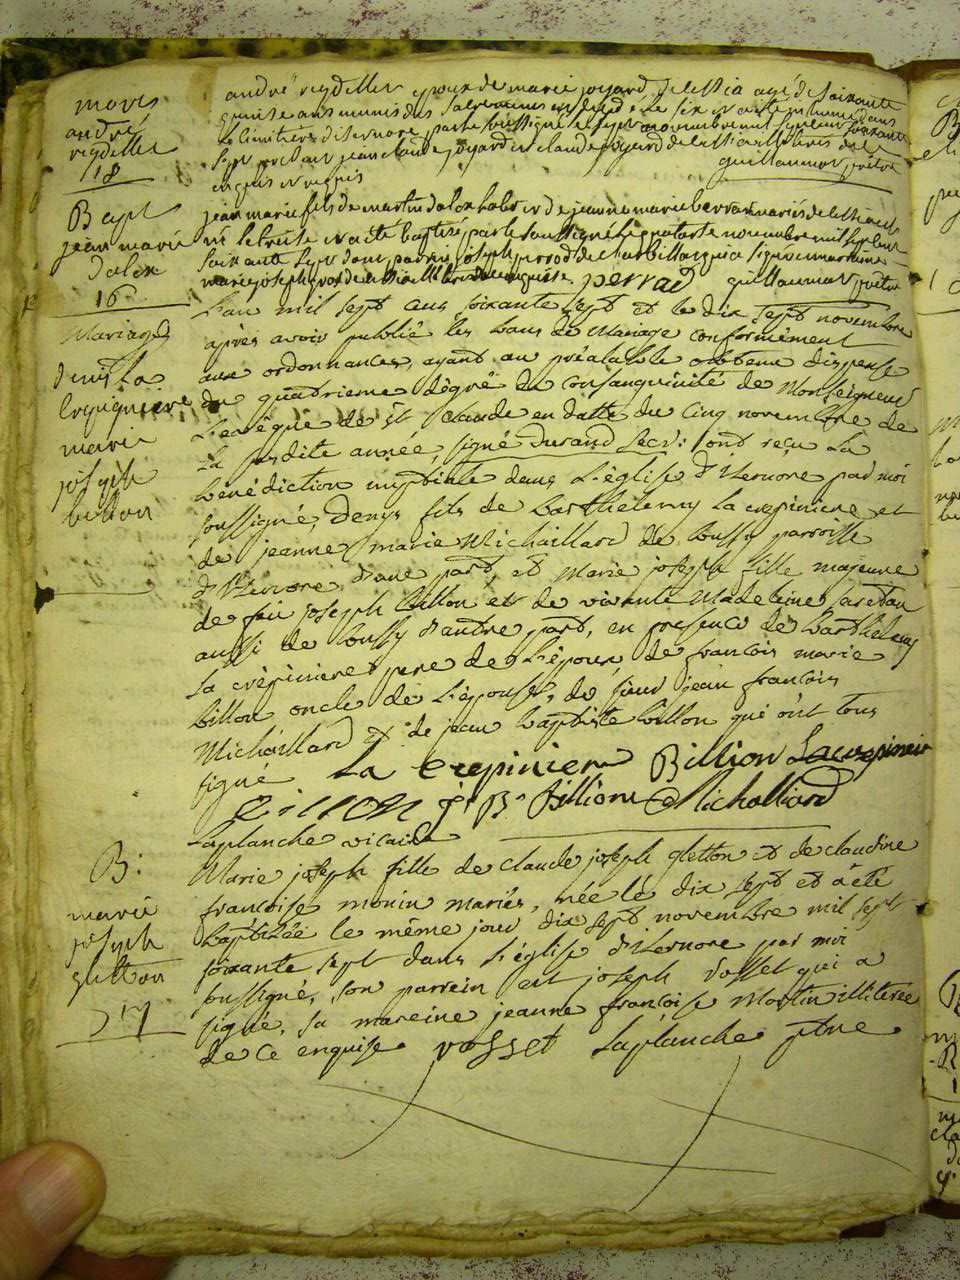 mors
andré
reydellet
18
andré reydellet epoux de marie joyard de lessia agé de soixante
quinze ans munis des sacremens est decedé le six et a été inhumé dans
le cimitiere d'isernore par le soussigné le sept novembre mil sept cent soixante
sept presens jean claude joyard et claude joyard de lessia illiteres de ce
enquis et requis guillaumot, prêtre
Bapt
jean marie
dalex
16
jean marie fils de martin dalex et de jeanne marie mariés de
né le trente et a été baptisé par le soussigné le quatorze novembre mil sept cent
soixante sept dont parrain joseph perrod de qui a signé marraine
marie joseph illiterée enquise perrad guillaumot, prêtre
Mariage
denis La
crepigniere
marie
joseph
billon
L'an mil sept cens soixante sept et le dix sept novembre
après avoir publié les bans de Mariage conformément
aux ordonnances, ayant au préalable obtenu dispense
du quatrieme dégré de consanguinité de Monseigneur
L'eveque de St Claude en datte du cinq novembre de
La susdite année, signé durand secr: ont reçu La
benédiction nuptiale dans L'église d'Izernore par moi
soussigné, Denys fils de Barthelemy La crepiniere et
de jeanne marie Michaillard de bussy parroisse
d'Izernore d'une part, et Marie joseph fille majeure
de feu joseph Billon et de vivante Madeleine
aussi de bussy d'autre part, en presence de Barthelemy
La crépiniere pere de L'époux, de francois marie
billon oncle de L'épouse, de sieur jean francois
Michaillard et de jean baptiste billon qui ont tous
signé La crepiniere Billion Lacrepiniere
Billion j. B. Billion Michalliard
Laplanche vicaire
B:
marie
joseph
gletton
17
Marie joseph fille de claude joseph gletton et de claudine
francoise monin mariés, née le dix sept et a été
baptisée le même jour dix sept novembre mil sept
soixante sept dans L'église d'Izernore par moi
soussigné, son parrein est joseph vosset qui a
signé, sa mareine jeanne francoise Martin illiterée
de ce enquise vosset Laplanche ptre